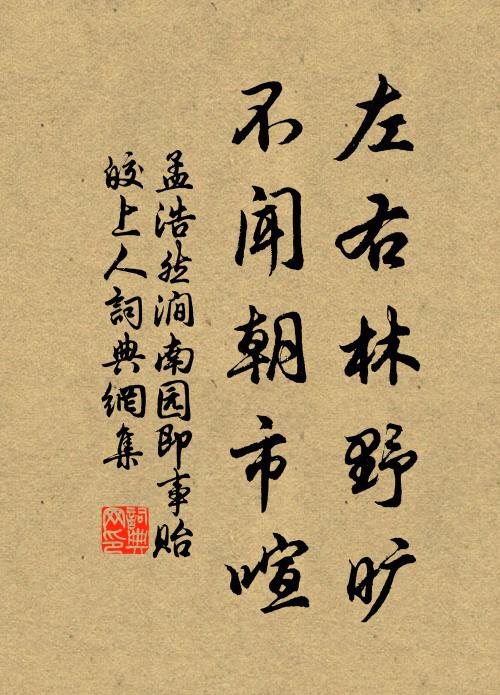 左右林野旷
不闻朝市喧
孟浩然澗南园即事贻
皎上人詞典網集
詞典
网印